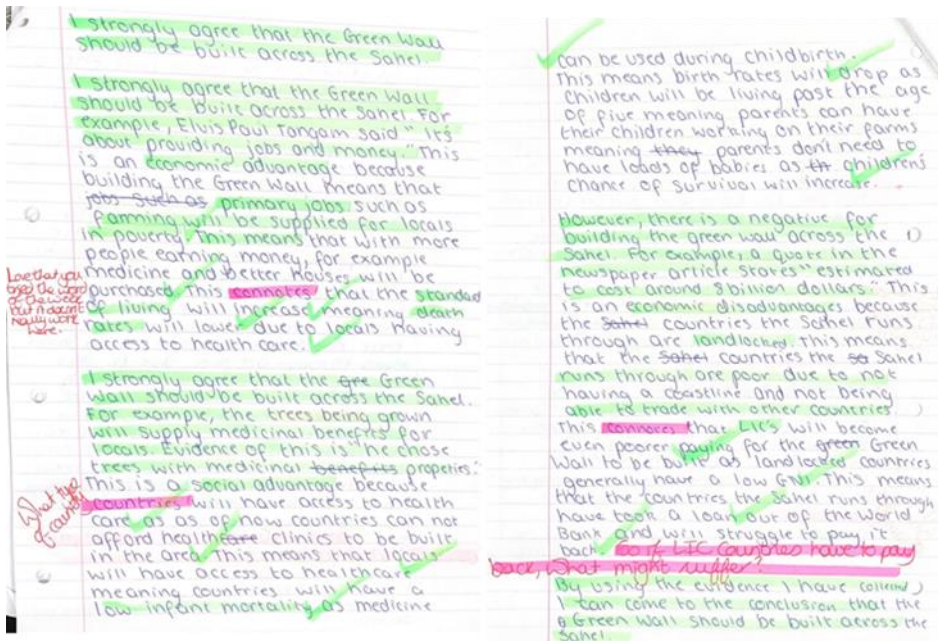 I strongly agree that the Green Wall
should be built across the Sahel.
I strongly agree that the Green Wall
should be built across the Sahel. For
example, Elvis Paul Tangam said "It's
about providing jobs and money." This
is an economic advantage because
building the Green Wall means that
jobs such as primary jobs such as
farming will be supplied for locals
in poverty. This means that with more
people earning money, for example
medicine and better houses will be
purchased. This connotes that the standad
of living will increase meaning death
rates will lower due to locals having
access to health care.
Love that you
used the word
of the week
but it doesn't
really work
here.
I strongly agree that the gre Green
Wall should be built across the Sahel.
For example, the trees being grown
will supply medicinal benefits for
locals. Evidence of this is "he chose
trees with medicinal benefits propeties."
This is a social advantage because
countries will have access to health
care as as of now countries can not
afford healthcare clinics to be built
in the area. This means that locals
will have access to healthcare
meaning countries will have a
low infant mortality as medicine
What type
of country?
can be used during childbirth.
This means birth rates will drop as
children will be living past the age
of five meaning parents can have
their children working on their farms
meaning they parents don't need to
have loads of babies as th children's
chance of survival will increase.
However, there is a negative for
building the green wall across the
Sahel. For example, a quote in the
newspaper article states "estimated
to cost around $billion dollars." This
is an economic disadvantages because
the Sahel countries the Sahel runs
through are landlocked. This means
that the Sahel countries the sa Sahel
runs through are poor due to not
having a coastline and not being
able to trade with other countries.
This connotes that LIC's will become
even poorer paying for the green Green
Wall to be built as landlocked countries
generally have a low GNI. This means
that the countries the Sahel runs through
have took a loan out of the World
Bank and will struggle to pay it
back. So if LIC countries have to pay
back, what might suffer?
By using the evidence I have collected,
I can come to the conclusion that the
g Green Wall should be built across the
Sahel.